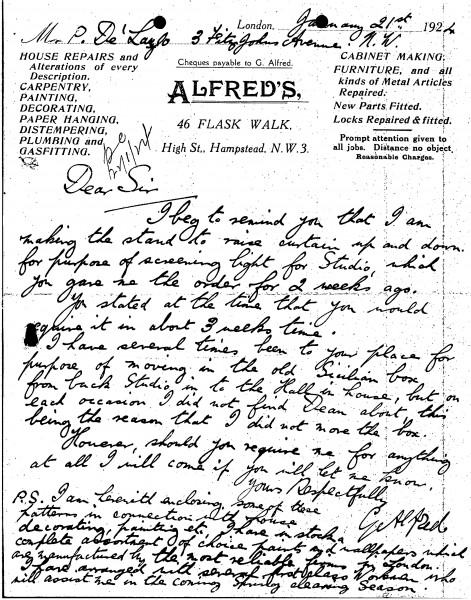 London, January 21st 1924
Mr. P. De'Laszlo 3 Fitz Johns Avenue. N.W.
HOUSE REPAIRS and
Alterations of every
Description.
CARPENTRY,
PAINTING,
DECORATING,
PAPER HANGING,
DISTEMPERING,
PLUMBING and
GASFITTING.
Cheques payable to G. Alfred.
ALFRED'S,
46 FLASK WALK,
High St., Hampstead, N.W.3.
CABINET MAKING,
FURNITURE, and all
kinds of Metal Articles
Repaired.
New Parts Fitted.
Locks Repaired & fitted.
Prompt attention given to
all jobs. Distance no object.
Reasonable Charges.
Dear Sir
I beg to remind you that I am
making the stand to raise curtain up and down
for purpose of screening light for Studio, which
you gave me the order for 2 weeks ago.
You stated at the time that you would
require it in about 3 weeks time.
I have several times been to your place for
purpose of moving in the old Sicilian box
from back Studio in to the Hall in house, but on
each occasion I did not find Dean about this
being the reason that I did not move the box.
However, should you require me for anything
at all I will come if you will let me know.
Yours Respectfully
G Alfred
P.S. I am herewith enclosing some of these
patterns in connection with house
decorating, painting et. I have in stock a
complete assortment of choice paints and wallpapers which
are manufactured by the most reliable firms in London.
I have arranged with several first class Workmen who
will assist me in the coming Spring cleaning Season.